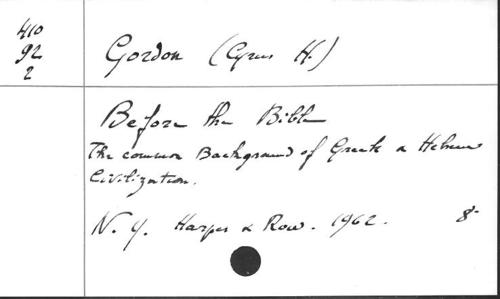 410
92
2
Gordon (Cyrus H.)
Before the Bible
The common Background of Greek & Hebrew
Civilization.
N. Y. Harper & Row. 1962. 8-